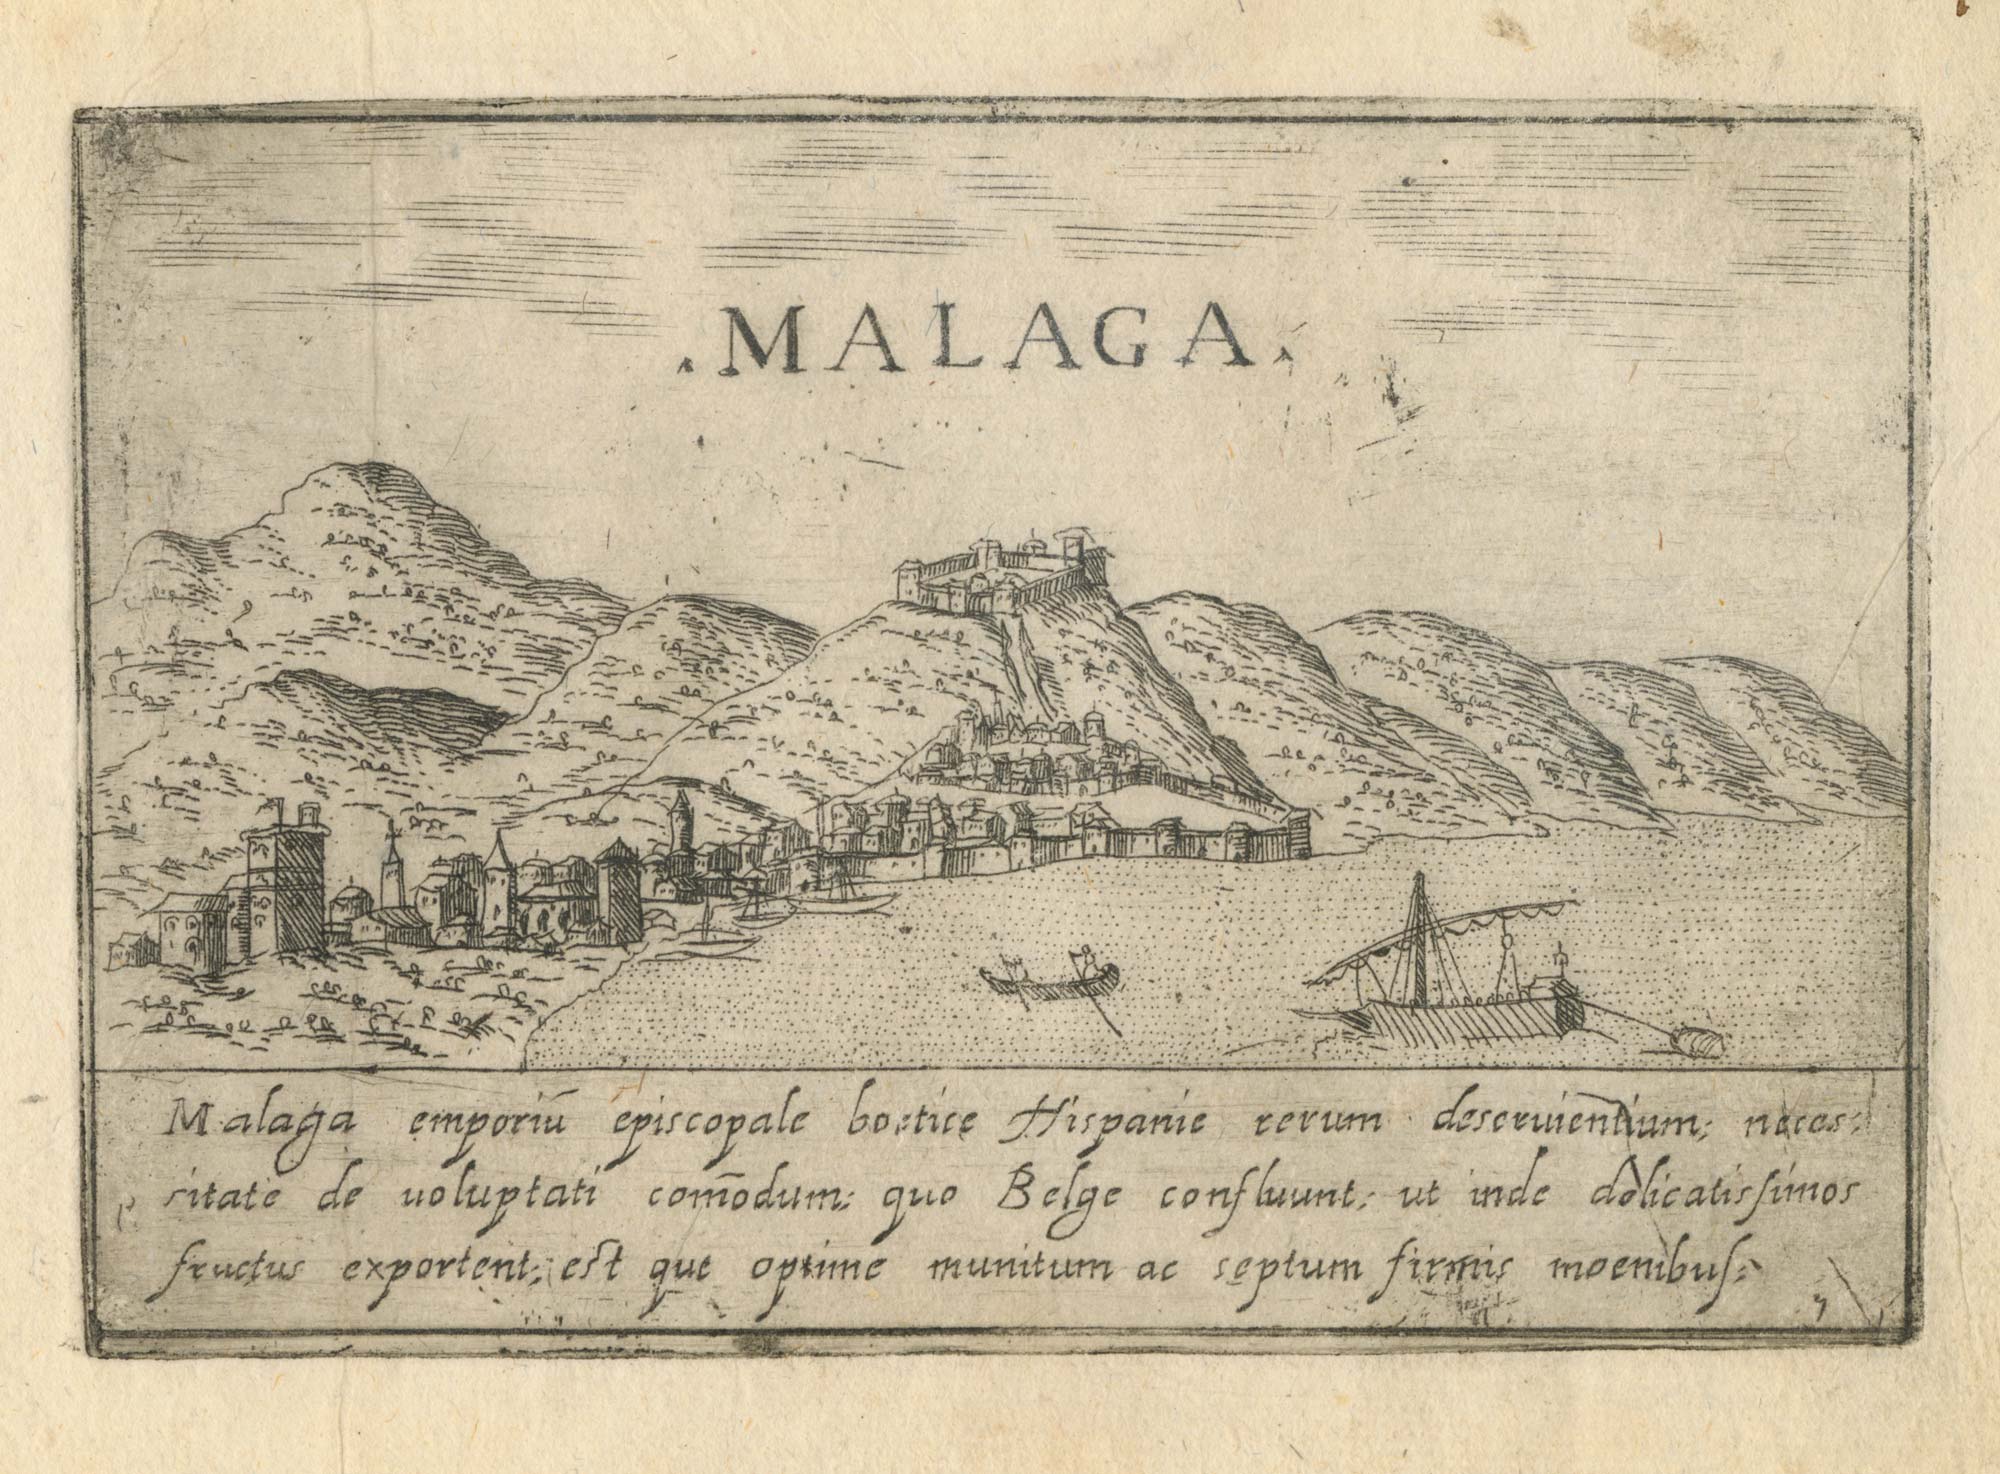 .MALAGA.
Malaga emporiū episcopale boetice Hispanie rerum deservientium; neces:
sitate de voluptati com̄odum; quo Belge confluunt; ut inde delicatissimos
fructus exportent; est que optime munitum ac septum firmis moenibus:
7